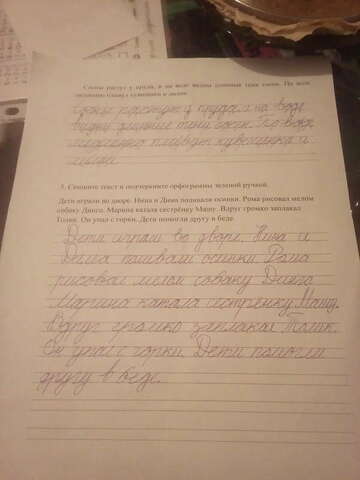 Сосны растут у пруда, а на воде видны длинные тени сосен. По воде
медленно плывут кувшинки и лилии.
Сосны растут у пруда, а на воде
видны длинные тени сосен. По воде
медленно плывут кувшинки и
лилии.
3. Спишите текст и подчеркните орфограммы зеленой ручкой.
Дети играли во дворе. Нина и Дима поливали осинки. Рома рисовал мелом
собаку Динго. Марина катала сестрёнку Машу. Вдруг громко заплакал
Толик. Он упал с горки. Дети помогли другу в беде.
Дети играли во дворе. Нина и
Дима поливали осинки. Рома
рисовал мелом собаку Динго.
Марина катала сестрёнку Машу.
Вдруг громко заплакал Толик.
Он упал с горки. Дети помогли
другу в беде.